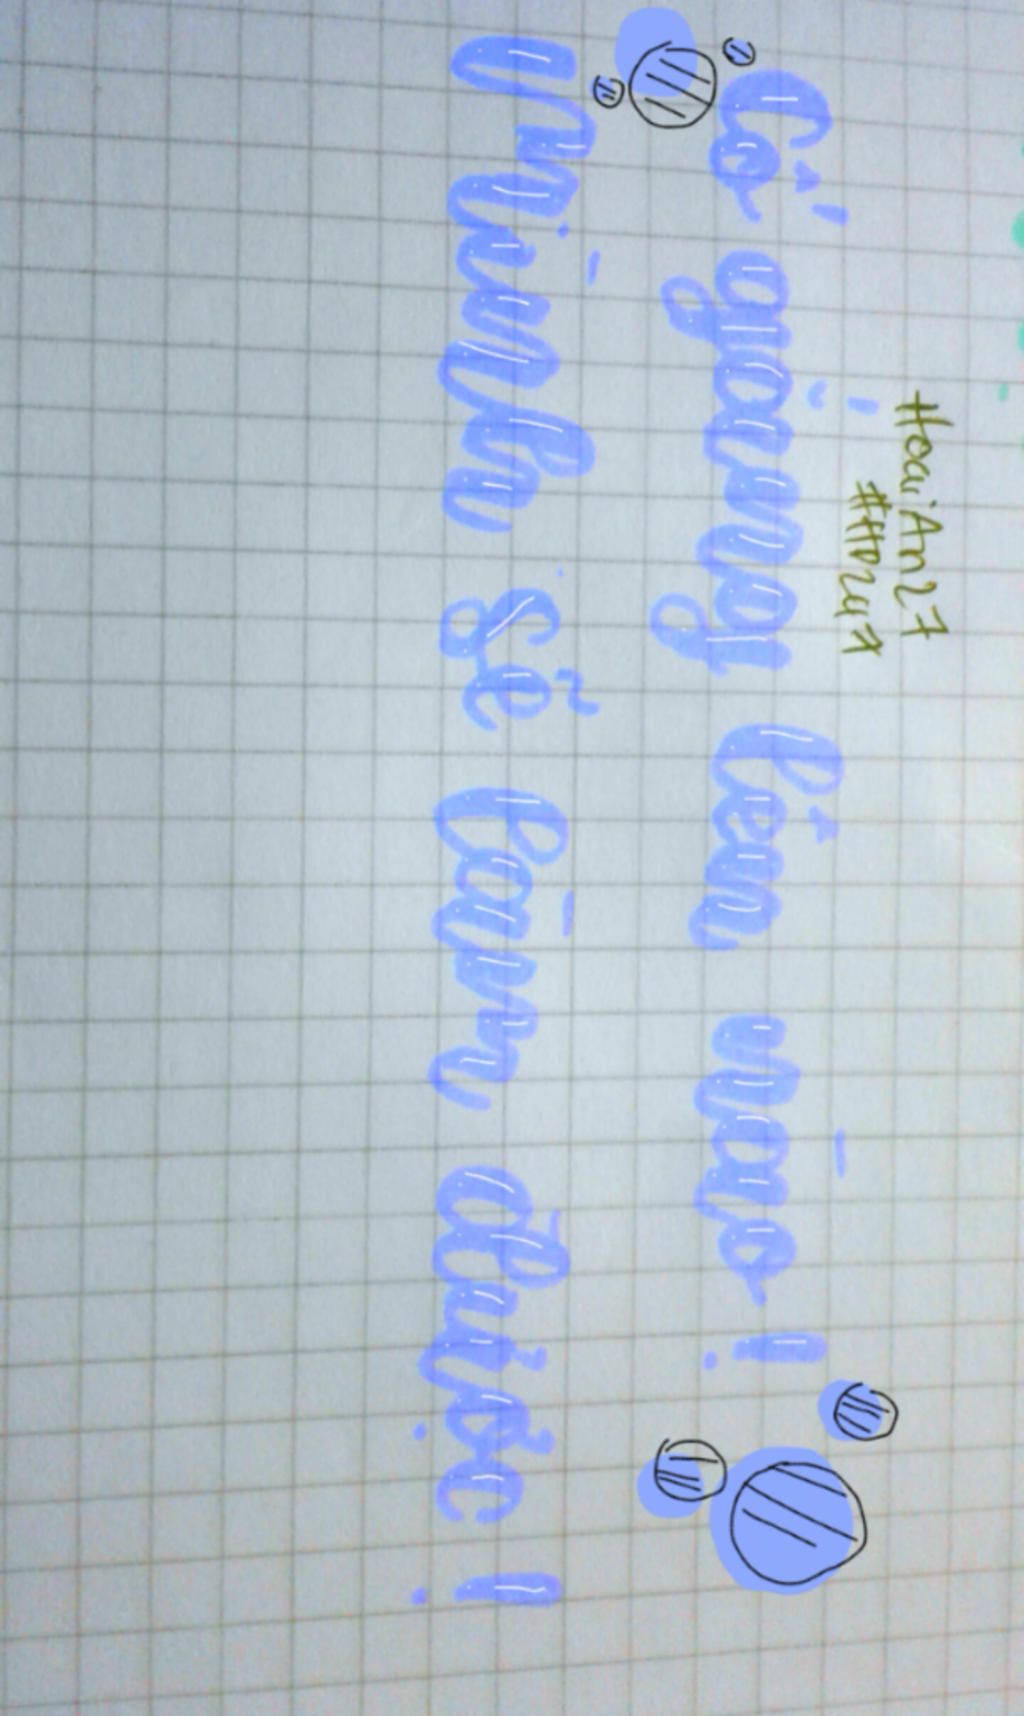 HoaiAn27
#HD247
Cố gắng lên nào!
Mình sẽ làm được!